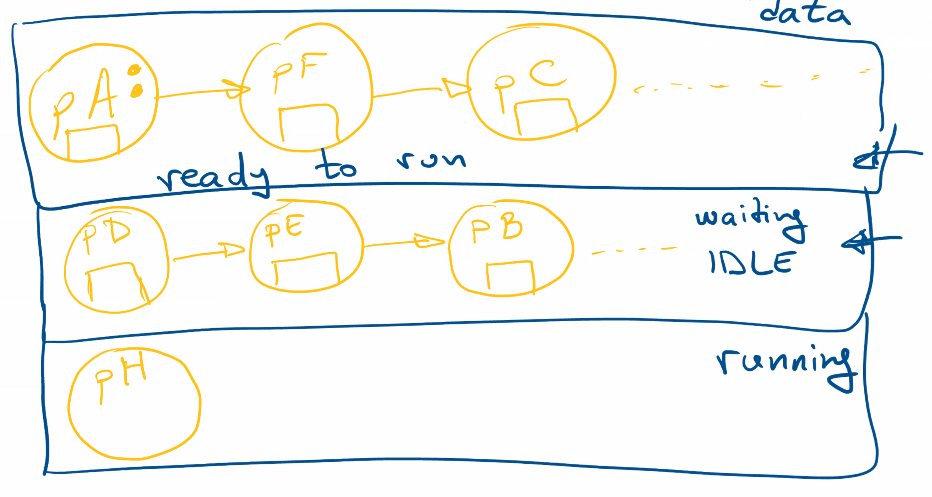 data
pA: pF pC
ready to run
pD pE pB waiting
IDLE
running
pH